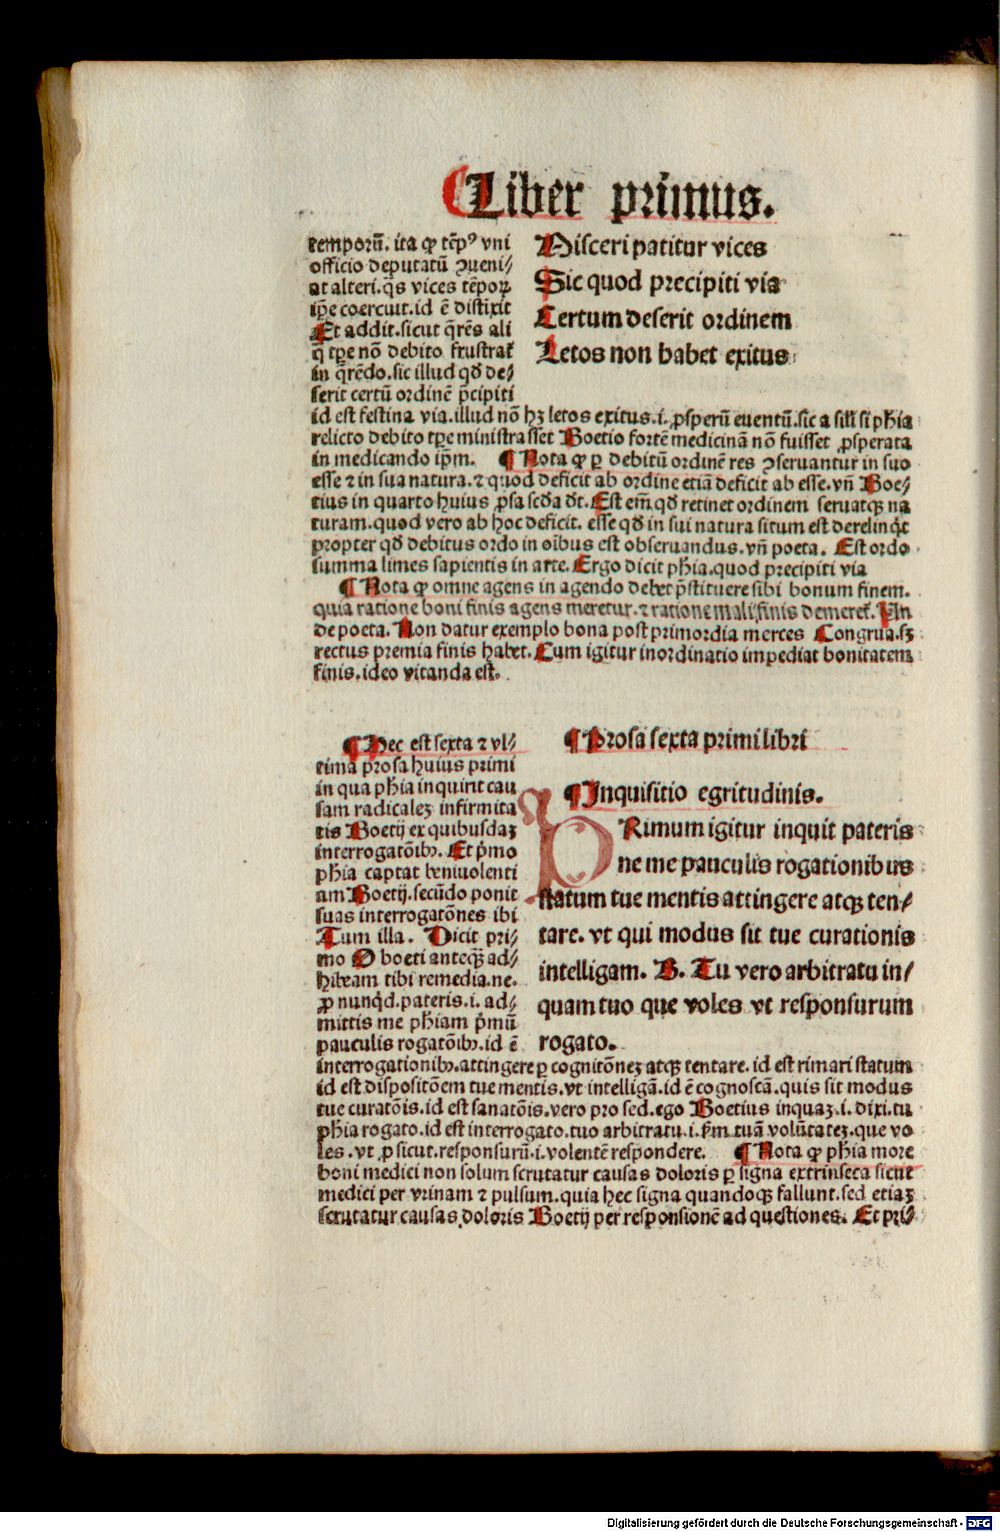 ¶Liber primus.
temporũ. ita ꝙ tẽpꝰ vni
officio deputatũ ɔueni⸗
at alteri. q̃s vices tẽpoꝝ
ip̃e coercuit. id ẽ distixit
Et addit. sicut q̃rẽs ali
q̃ tꝑe nõ debito frustrat᷑
in q̃rẽdo. sic illud qđ de⸗
serit certũ ordinẽ p̃cipiti
Misceri patitur vices
Sic quod precipiti via
Certum deserit ordinem
Letos non habet exitus
id est festina via. illud nõ hꝫ letos exitus. i. ꝓsperũ euentũ. sic a sili si phīa
relicto debito tꝑe ministrasset Boetio fortẽ medicinã nõ fuisset ꝓsperata
in medicando ip̃m. ¶ Nota ꝙ ꝑ debitũ ordinẽ res ɔseruantur in suo
esse ⁊ in sua natura. ⁊ quod deficit ab ordine etiã deficit ab esse. vñ Boe⸗
tius in quarto huius ꝓsa scđa dt̃. Est em̃ qđ retinet ordinem seruatqꝫ na
turam. quod vero ab hoc deficit. esse qđ in sui natura situm est derelinq̃t
propter qđ debitus ordo in oĩbus est obseruandus. vñ poeta. Est ordo
summa limes sapientis in arte. Ergo dicit phīa. quod precipiti via
¶ Nota ꝙ omne agens in agendo debet p̃stituere sibi bonum finem.
quia ratione boni finis agens meretur. ⁊ ratione mali finis demeret᷑. Vn
de poeta. Non datur exemplo bona post primordia merces Congrua. sꝫ
rectus premia finis habet. Cum igitur inordinatio impediat bonitatem
finis. ideo vitanda est.
¶ Hec est sexta ⁊ vl⸗
tima prosa huius primi
in qua phīa inquirit cau
sam radicaleꝫ infirmita
tis Boetij ex quibusdaꝫ
interrogatõibꝰ. Et p̃mo
phīa captat beniuolenti
am Boetij. secũdo ponit
suas interrogatõnes ibi
Tum illa. Dicit pri⸗
mo O boeti anteqꝫ ad⸗
hibeam tibi remedia. ne.
ꝓ nunq̃d. pateris. i. ad⸗
mittis me phīam p̃mũ
pauculis rogatõibꝰ. id ẽ
¶ Prosa sexta primi libri
¶ Inquisitio egritudinis.
PRimum igitur inquit pateris
ne me pauculis rogationibus
statum tue mentis attingere atqꝫ ten⸗
tare. vt qui modus sit tue curationis
intelligam. B. Tu vero arbitratu in⸗
quam tuo que voles vt responsurum
rogato.
interrogationibꝰ. attingere ꝑ cognitõneꝫ atqꝫ tentare. id est rimari statum
id est dispositõem tue mentis. vt intelligã. id ẽ cognoscã. quis sit modus
tue curatõis. id est sanatõis. vero pro sed. ego Boetius inquaꝫ. i. dixi. tu
phīa rogato. id est interrogato. tuo arbitratu. i. fm̃ tuã volũtateꝫ. que vo
les. vt ꝓ sicut. responsurũ. i. volentẽ respondere. ¶ Nota ꝙ phīa more
boni medici non solum scrutatur causas doloris ꝑ signa extrinseca sicut
medici per vrinam ⁊ pulsum. quia hec signa quandoqꝫ fallunt. sed etiaꝫ
scrutatur causas doloris Boetij per responsionẽ ad questiones. Et pri⸗
Digitalisierung gefördert durch die Deutsche Forschungsgemeinschaft - DFG